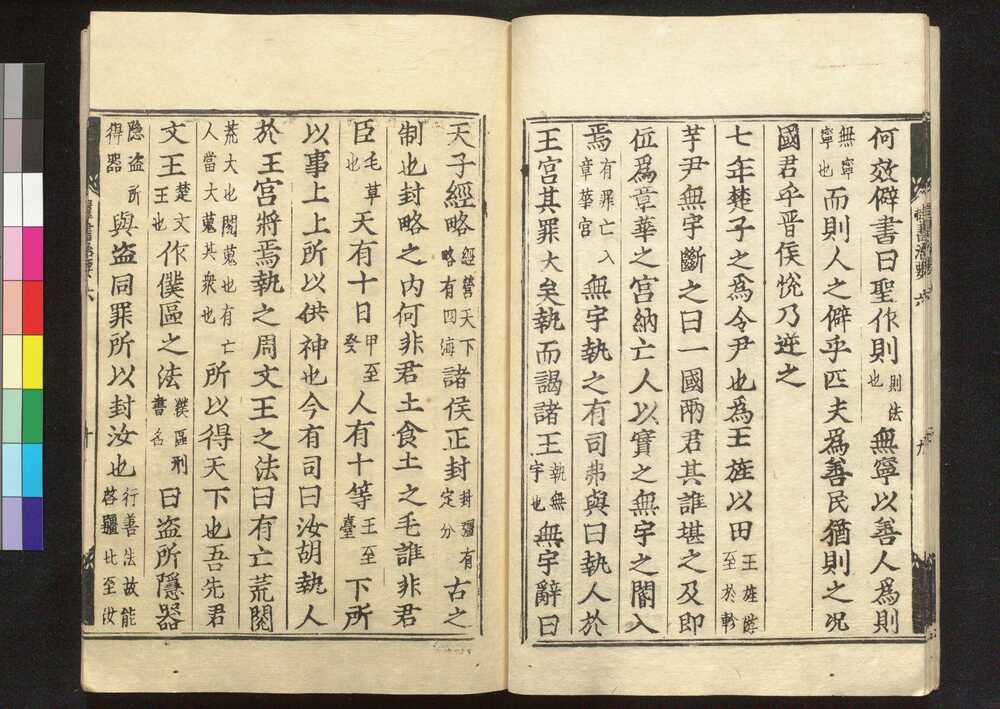 何效僻書曰聖作則則法也無寧以善人爲則
無寧寧也而則人之僻乎匹夫爲善民猶則之况
國君乎晋侯悅乃逆之
七年楚子之爲令尹也爲王旌以田王旌游至於軫
芋尹無宇斷之曰一國兩君其誰堪之及即
位爲章華之宮納亡人以實之無宇之閽入
焉有罪亡入章華宮無宇執之有司弗與曰執人於
王宮其罪大矣執而謁諸王執無宇也無宇辭曰
天子經略經營天下略有四海諸侯正封封疆有定分古之
制也封略之内何非君土食土之毛誰非君
臣毛草也天有十日甲至癸人有十等王至臺下所
以事上上所以供神也今有司曰汝胡執人
於王宮將焉執之周文王之法曰有亡荒閱
荒大也閱蒐也有亡人當大蒐其衆也所以得天下也吾先君
文王楚文王也作僕區之法僕區刑書名曰盗所隱器
隐盗所得器與盗同罪所以封汝也行善法故能啓疆北至汝
群書治要六
九
十